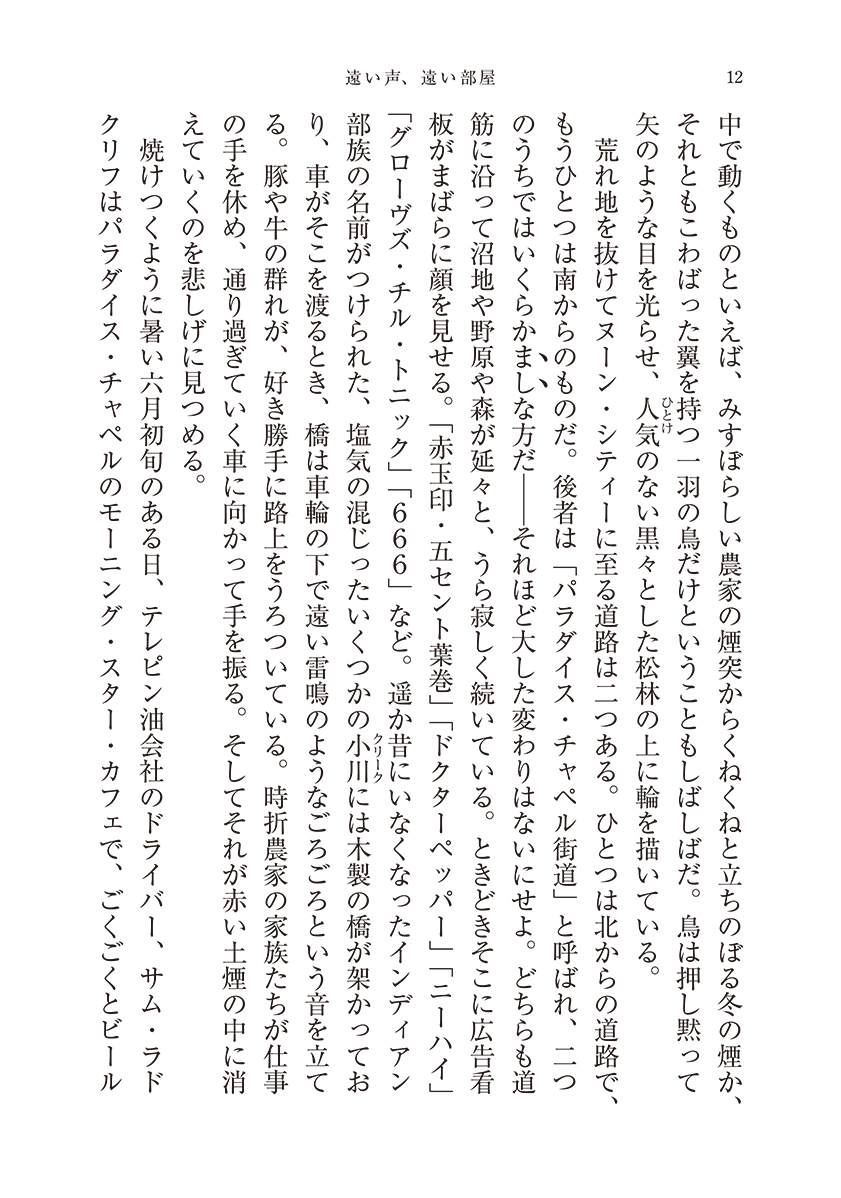 遠い声、遠い部屋
12
中で動くものといえば、みすぼらしい農家の煙突からくねくねと立ちのぼる冬の煙か、
それともこわばった翼を持つ一羽の鳥だけということもしばしばだ。鳥は押し黙って
矢のような目を光らせ、人気のない黒々とした松林の上に輪を描いている。
ひとけ
荒れ地を抜けてヌーン・シティーに至る道路は二つある。ひとつは北からの道路で、
もうひとつは南からのものだ。後者は「パラダイス・チャペル街道」と呼ばれ、二つ
のうちではいくらかましな方だ――それほど大した変わりはないにせよ。どちらも道
筋に沿って沼地や野原や森が延々と、うら寂しく続いている。ときどきそこに広告看
板がまばらに顔を見せる。「赤玉印・五セント葉巻」「ドクターペッパー」「ニーハイ」
「グローヴズ・チル・トニック」「666」など。遥か昔にいなくなったインディアン
部族の名前がつけられた、塩気の混じったいくつかの小川には木製の橋が架かってお
クリーク
り、車がそこを渡るとき、橋は車輪の下で遠い雷鳴のようなごろごろという音を立て
る。豚や牛の群れが、好き勝手に路上をうろついている。時折農家の家族たちが仕事
の手を休め、通り過ぎていく車に向かって手を振る。そしてそれが赤い土煙の中に消
えていくのを悲しげに見つめる。
焼けつくように暑い六月初旬のある日、テレピン油会社のドライバー、サム・ラド
クリフはパラダイス・チャペルのモーニング・スター・カフェで、ごくごくとビール